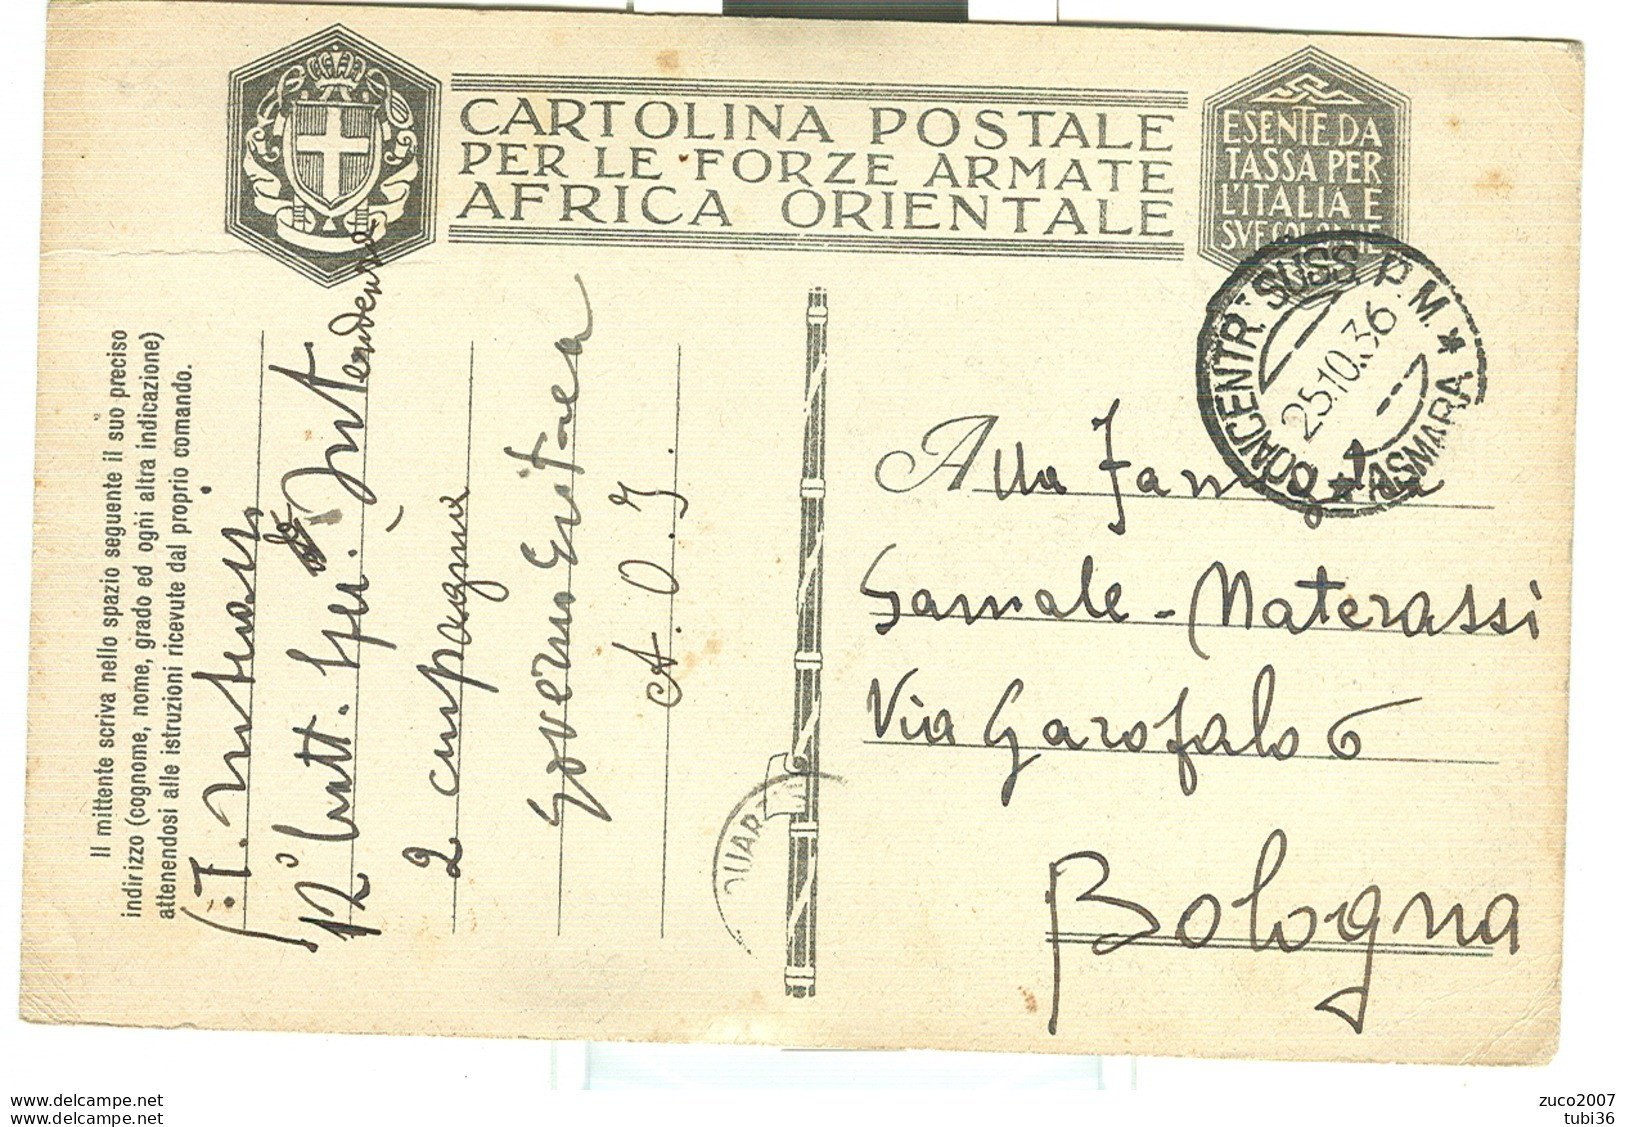 CARTOLINA POSTALE
PER LE FORZE ARMATE
AFRICA ORIENTALE
ESENTE DA
TASSA PER
L'ITALIA E
SVE COLONIE
CONCENTR. SUSS. P.M. * ASMARA *
25.10.36
Il mittente scriva nello spazio seguente il suo preciso
indirizzo (cognome, nome, grado ed ogni altra indicazione)
attenendosi alle istruzioni ricevute dal proprio comando.
S.T.
12° Intendenza
2 compagnia
Governo Eritrea
A. O. I.
Alla Famiglia
Samale - Materassi
Via Garofalo 6
Bologna
QUAR
My Own Collection
My Own Collection
zuco2007
tubi36